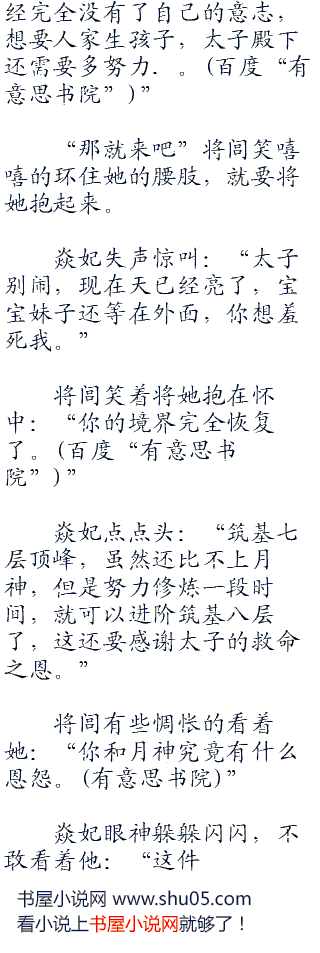 经完全没有了自己的意志，
想要人家生孩子，太子殿下
还需要多努力．。(百度“有
意思书院”)”
“那就来吧”将闾笑嘻
嘻的环住她的腰肢，就要将
她抱起来。
焱妃失声惊叫：“太子
别闹，现在天已经亮了，宝
宝妹子还等在外面，你想羞
死我。”
将闾笑着将她抱在怀
中：“你的境界完全恢复
了。(百度“有意思书
院”)”
焱妃点点头：“筑基七
层顶峰，虽然还比不上月
神，但是努力修炼一段时
间，就可以进阶筑基八层
了，这还要感谢太子的救命
之恩。”
将闾有些惆怅的看着
她：“你和月神究竟有什么
恩怨。(有意思书院)”
焱妃眼神躲躲闪闪，不
敢看着他：“这件
书屋小说网 www.shu05.com
看小说上书屋小说网就够了！